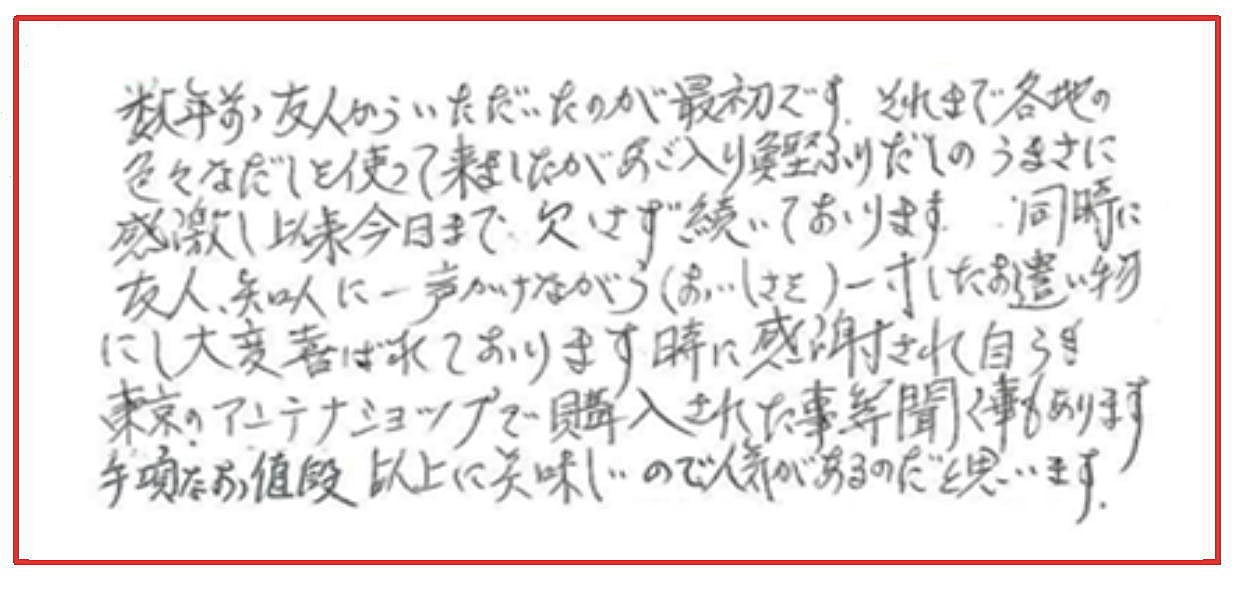 数年前、友人からいただいたのが最初です。それまで各地の
色々なだしを使って来ましたがあご入り鰹ふりだしのうまさに
感激し以来今日まで、欠けさず続いております。同時に
友人、知人に一声かけながら(おいしさを)一寸したお遣い物
にし大変喜ばれております時に感謝され自らも
東京のアンテナショップで購入された事等聞く事もあります
手頃なお値段以上に美味しいので人気があるのだと思います。